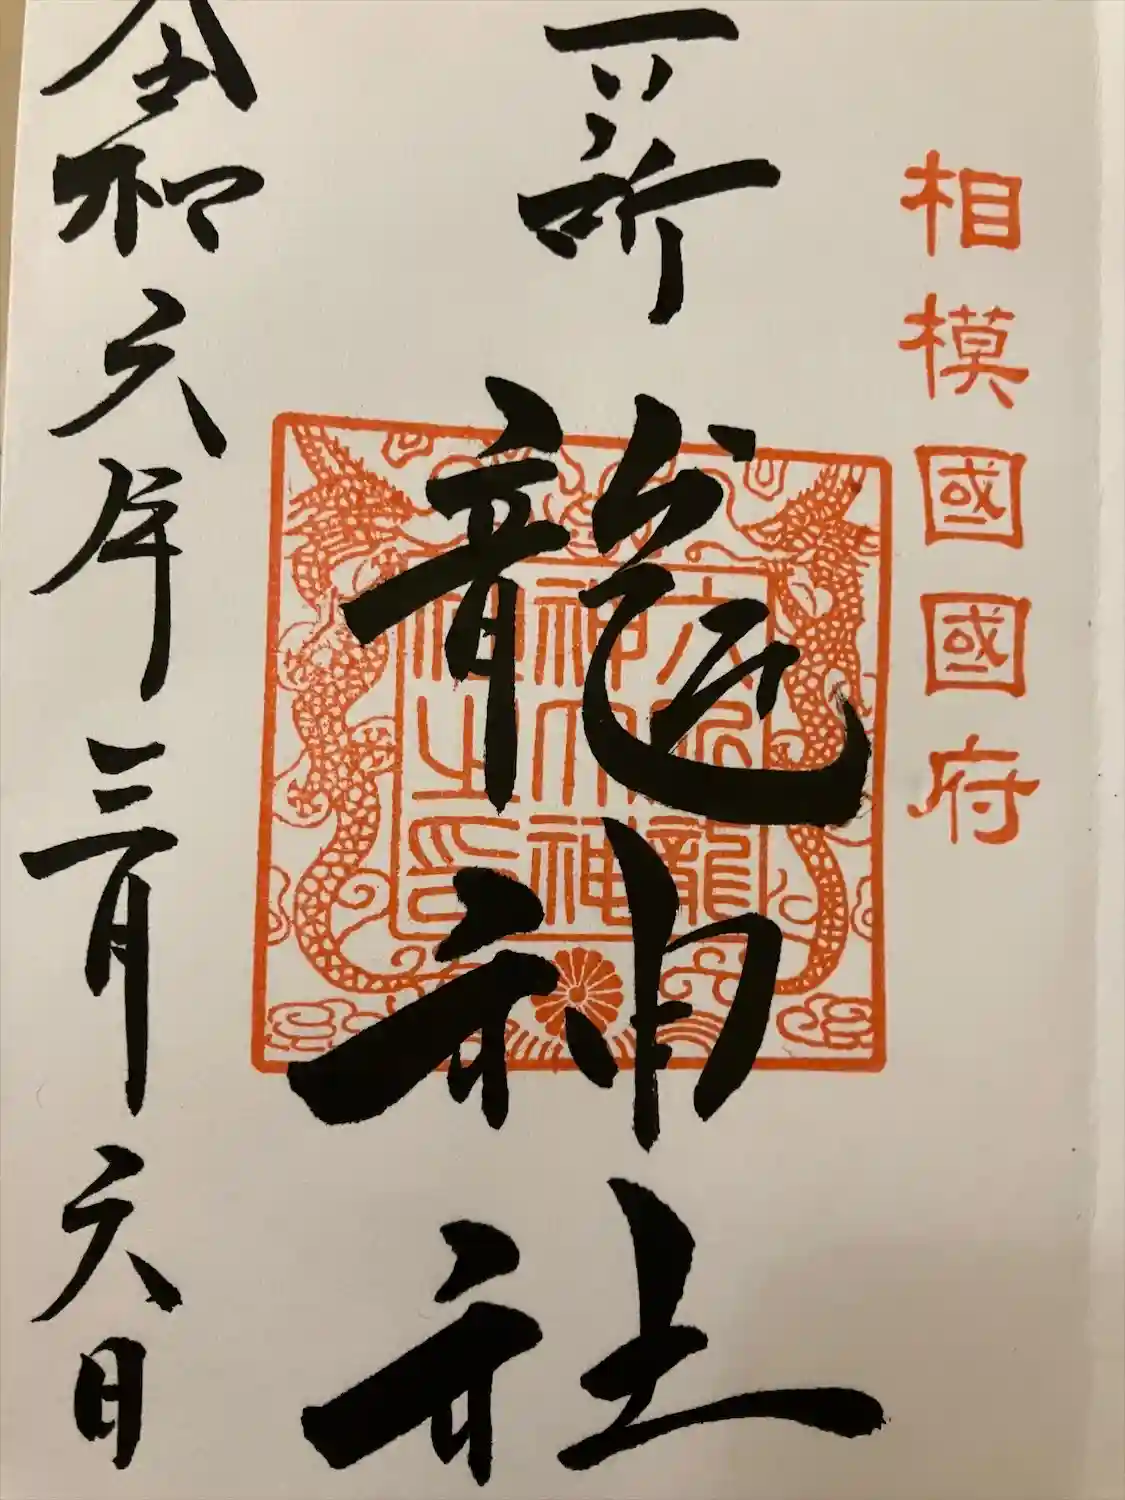 相模國國府
六所
龍神社
令和六年三月六日